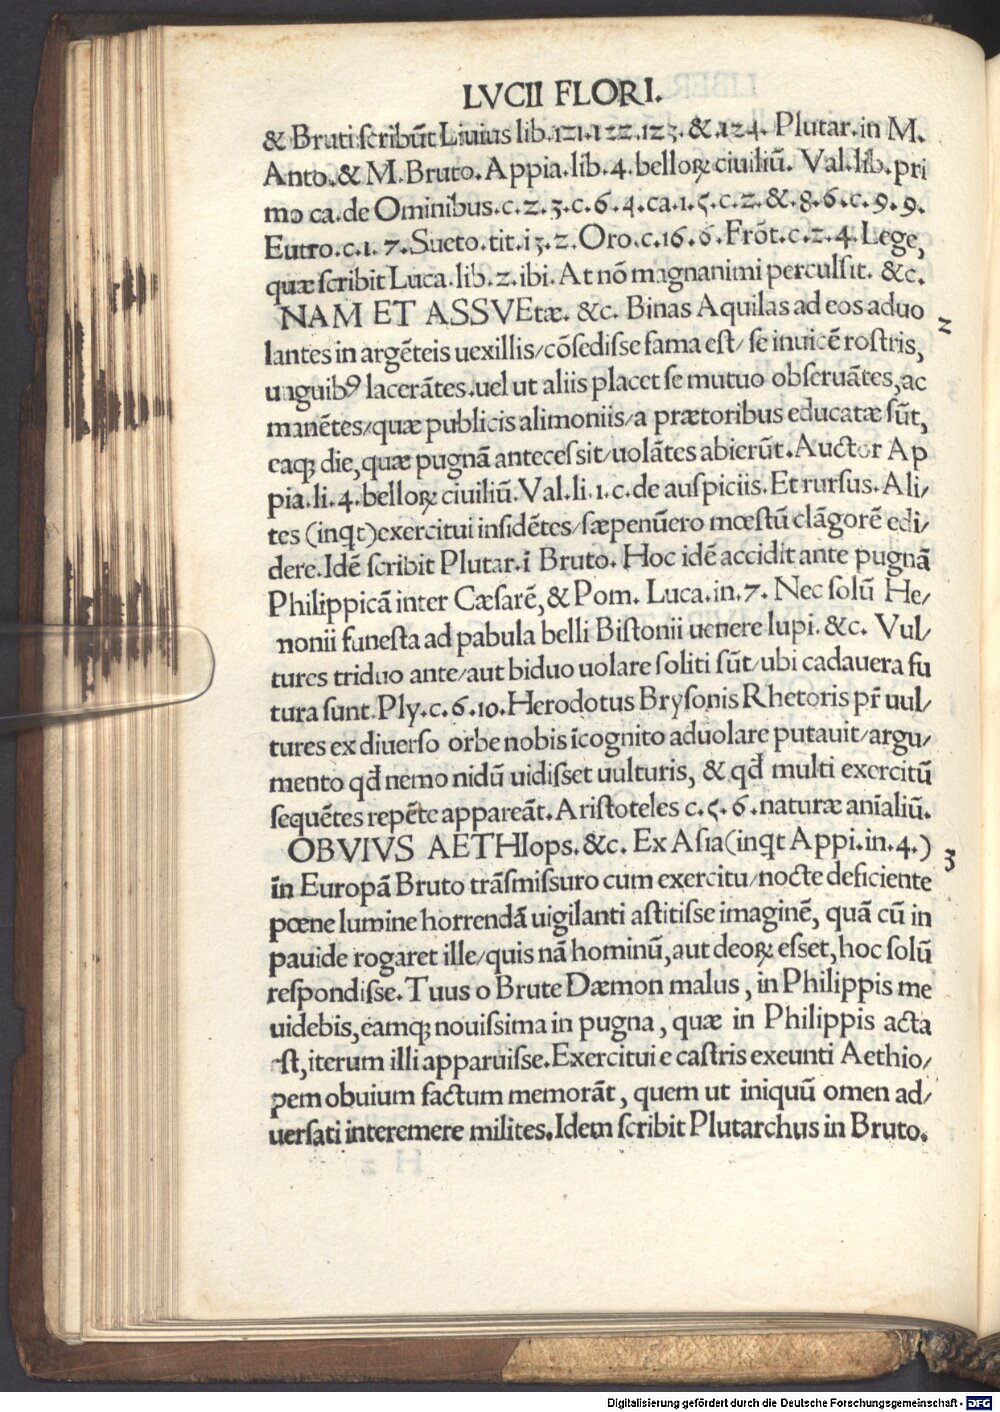 LVCII FLORI.
& Bruti scribūt Liuius lib.121.122.123.&.124. Plutar.in M.
Anto.& M.Bruto.Appia.lib.4.belloꝝ ciuiliū. Val.lib.pri
mo ca.de Ominibus.c.2.3.c.6.4.ca.1.5.c.2.&.8.6.c.9.9.
Eutro.c.1.7.Sueto.tit.13.2.Oro.c.16.6.Frōt.c.2.4.Lege,
quæ scribit Luca.lib.2.ibi.At nō magnanimi percussit. &c.
NAM ET ASSVEtæ. &c. Binas Aquilas ad eos aduo
2
lantes in argēteis uexillis/cōsedisse fama est/ se inuicē rostris,
unguibꝰ lacerātes.uel ut aliis placet se mutuo obseruātes,ac
manētes/quæ publicis alimoniis/a prætoribus educatæ sūt,
eaqꝫ die,quæ pugnā antecessit/uolātes abierūt.Auctor Ap
pia.li.4.belloꝝ ciuiliū.Val.li.1.c.de auspiciis.Et rursus.Ali/
tes (inqt)exercitui insidētes/sæpenūero mœstū clāgorē edi/
dere.Idē scribit Plutar.ī Bruto.Hoc idē accidit ante pugnā
Philippicā inter Cæsarē,& Pom. Luca.in.7. Nec solū He/
nonii funesta ad pabula belli Bistonii uenere lupi.&c. Vul/
tures triduo ante/aut biduo uolare soliti sūt/ubi cadauera fu
tura sunt.Ply.c.6.10.Herodotus Brysonis Rhetoris pr̄ uul/
tures ex diuerso orbe nobis īcognito aduolare putauit/argu/
mento qđ nemo nidū uidisset uulturis, & qđ multi exercitū
sequētes repēte appareāt.Aristoteles c.5.6.naturæ anīaliū.
OBVIVS AETHIops.&c. Ex Asia(inqt Appi.in.4.)
3
īn Europā Bruto trāsmissuro cum exercitu/nocte deficiente
pœne lumine horrendā uigilanti astitisse imaginē, quā cū in
pauide rogaret ille/quis nā hominū,aut deoꝝ esset,hoc solū
respondisse.Tuus o Brute Dæmon malus, in Philippis me
uidebis,eamqꝫ nouissima in pugna, quæ in Philippis acta
est,iterum illi apparuisse.Exercitui e castris exeunti Aethio/
pem obuium factum memorāt, quem ut iniquū omen ad/
uersati interemere milites.Idem scribit Plutarchus in Bruto.
Digitalisierung gefördert durch die Deutsche Forschungsgemeinschaft - DFG